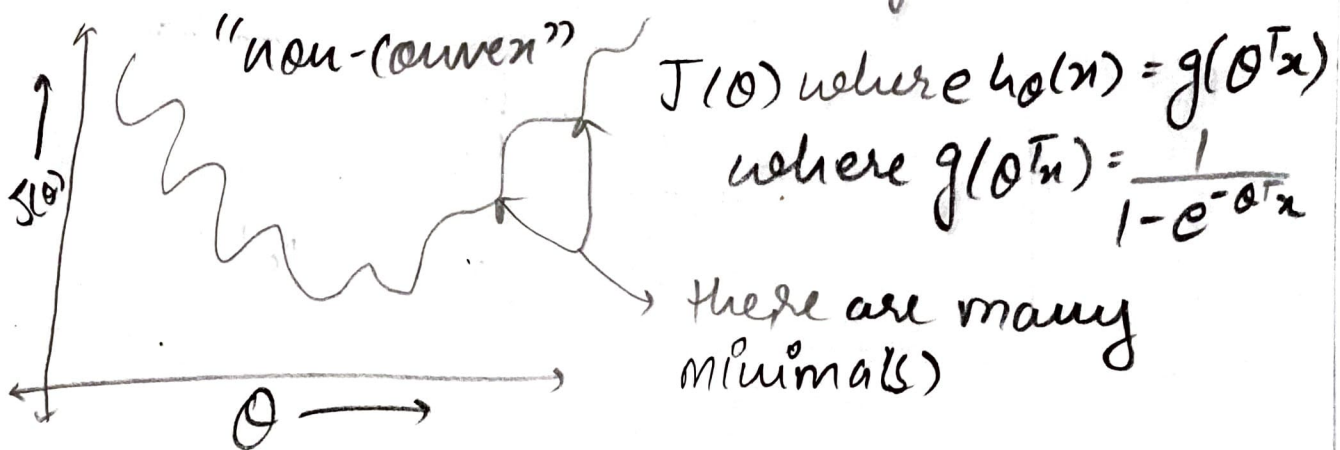 "non-convex"
J(θ) where hθ(x) = g(θᵀx)
where g(θᵀx) = 1 / 1 - e^-θᵀx
J(θ)
there are many
minima(s)
θ